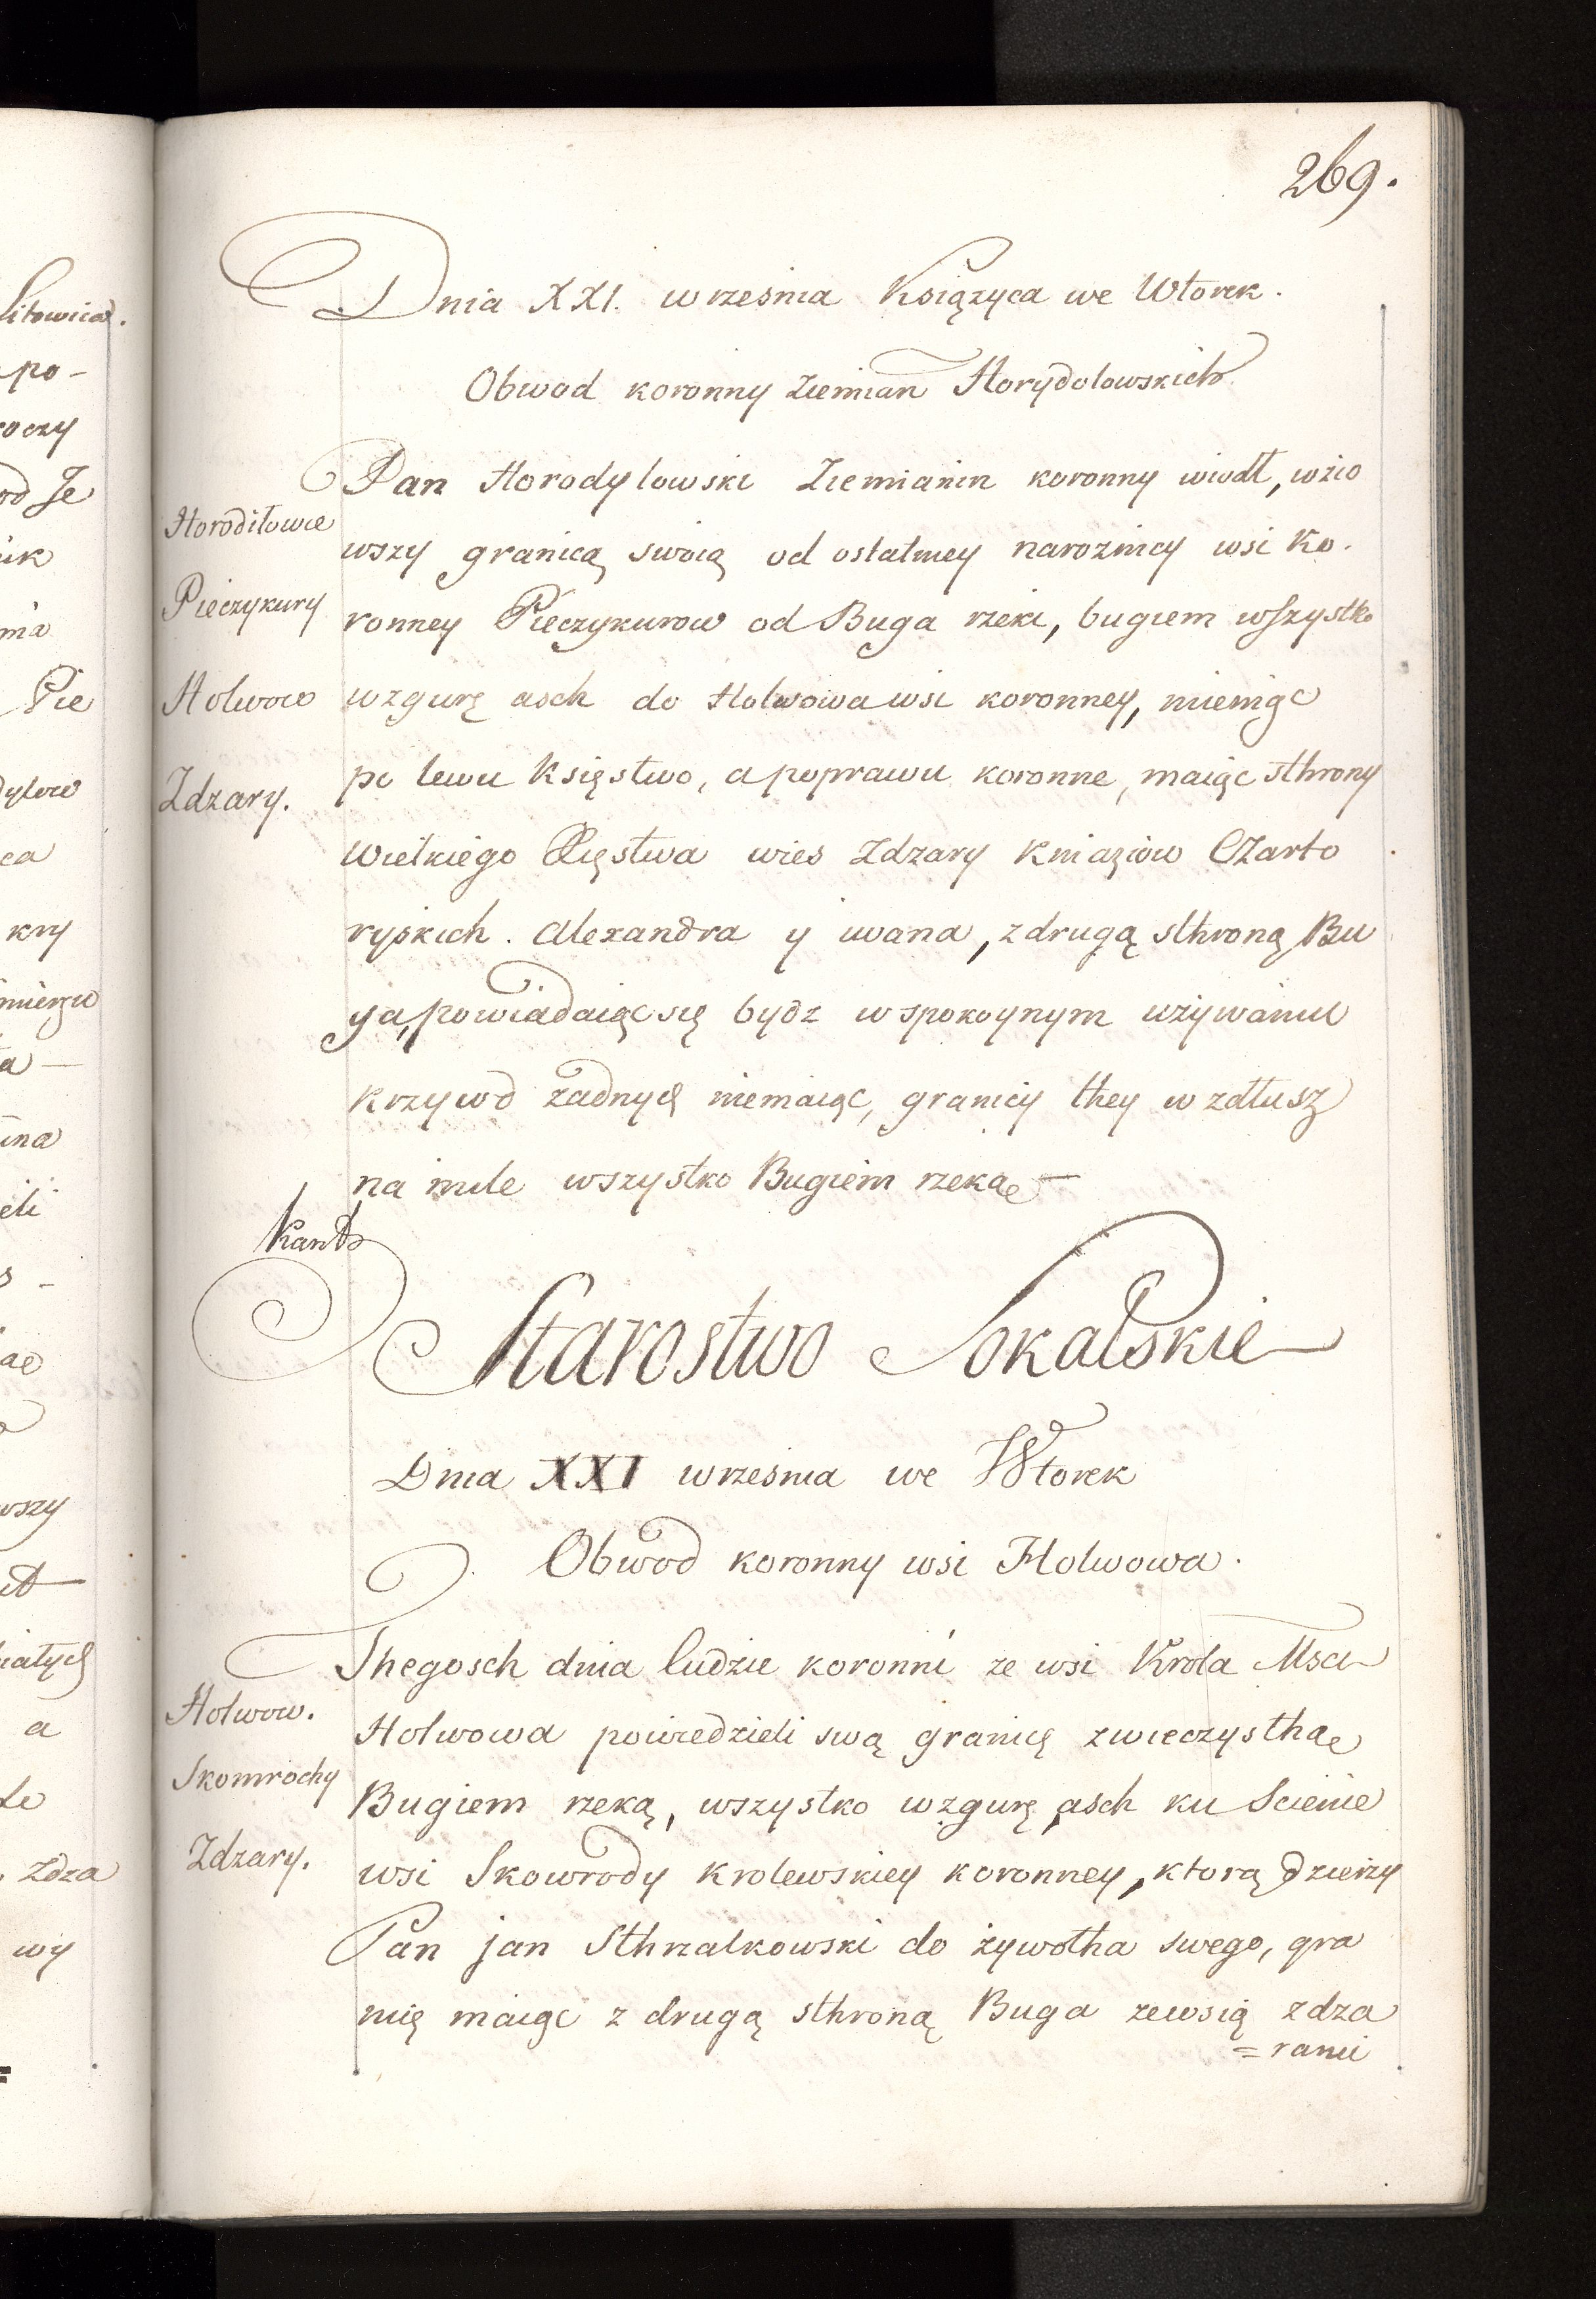 269.
Dnia XXI. wrzesnia Książyca we Wtorek.
Obwod koronny Ziemian Horydolowskich
Pan Horodylowski Ziemianin koronny wiodł, wzio
Horodiłowce
wszy granicą swoią od ostatniey naroznicy wsi Ko.
Pieczykury
ronney Pieczykurow od Buga rzeki, bugiem wszystko
Holwow
wzgurę asch do Holwowa wsi koronney, mieniąc
Zdzary.
po lewu Księstwo, a poprawu koronne, maiąc sthrony
Wielkiego Xięstwa wies Zdzary Kniaziow Czarto
ryskich. Alexandra y iwana, z drugą sthroną Bu
ga, powiadaiąc się bydz w spokoynym używaniu
krzywd żadnych niemaiąc, granicy they w zdłusz
na mile wszystko Bugiem rzeką
Kant
Starostwo Sokalskie
Dnia XXI wrzesnia we Wtorek
Obwod koronny wsi Holwowa.
Thegosch dnia ludzie koronni ze wsi Krola Msci
Holwow.
Holwowa powiedzieli swą granicę zwieczysthą
Skomrochy
Bugiem rzeką, wszystko wzgurę asch ku Scienie
Zdzary.
wsi Skowrody krolewskiey koronney, ktorą dzierzy
Pan jan Sthrzalkowski do żywotha swego, gra
nię maiąc z drugą sthroną Buga zewsią zdza
=rami
Litowica.
po-
roczy
od Je
uk
ma
Pie
dylow
ca
kry
mierzu
a —
ina
eli
s -
ae
wszy
it
iatych
a
le
Zdza
wy